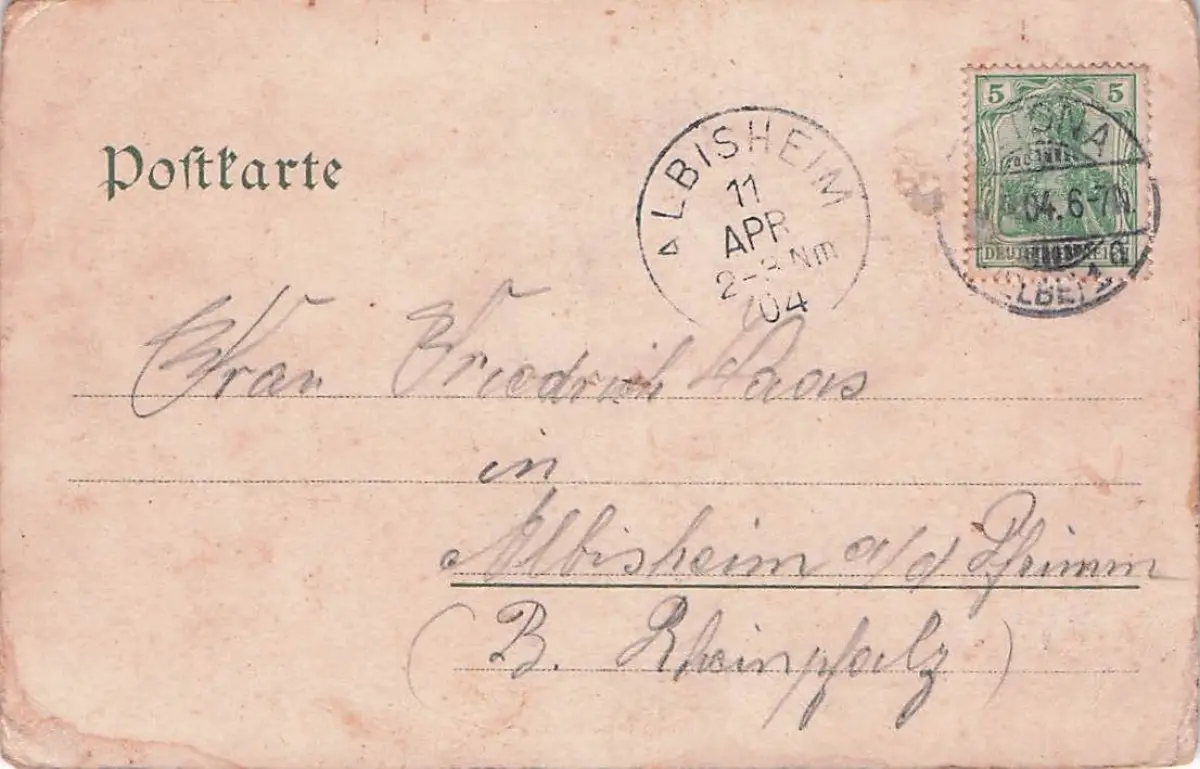 Postkarte
5 5
DEUTSCHES REICH
04. 6-7N.
ALBISHEIM
11
APR
2-3 Nm
04
Frau Friedrich Haas
in
Albisheim a/d Pfrimm
(B. Rheinpfalz)